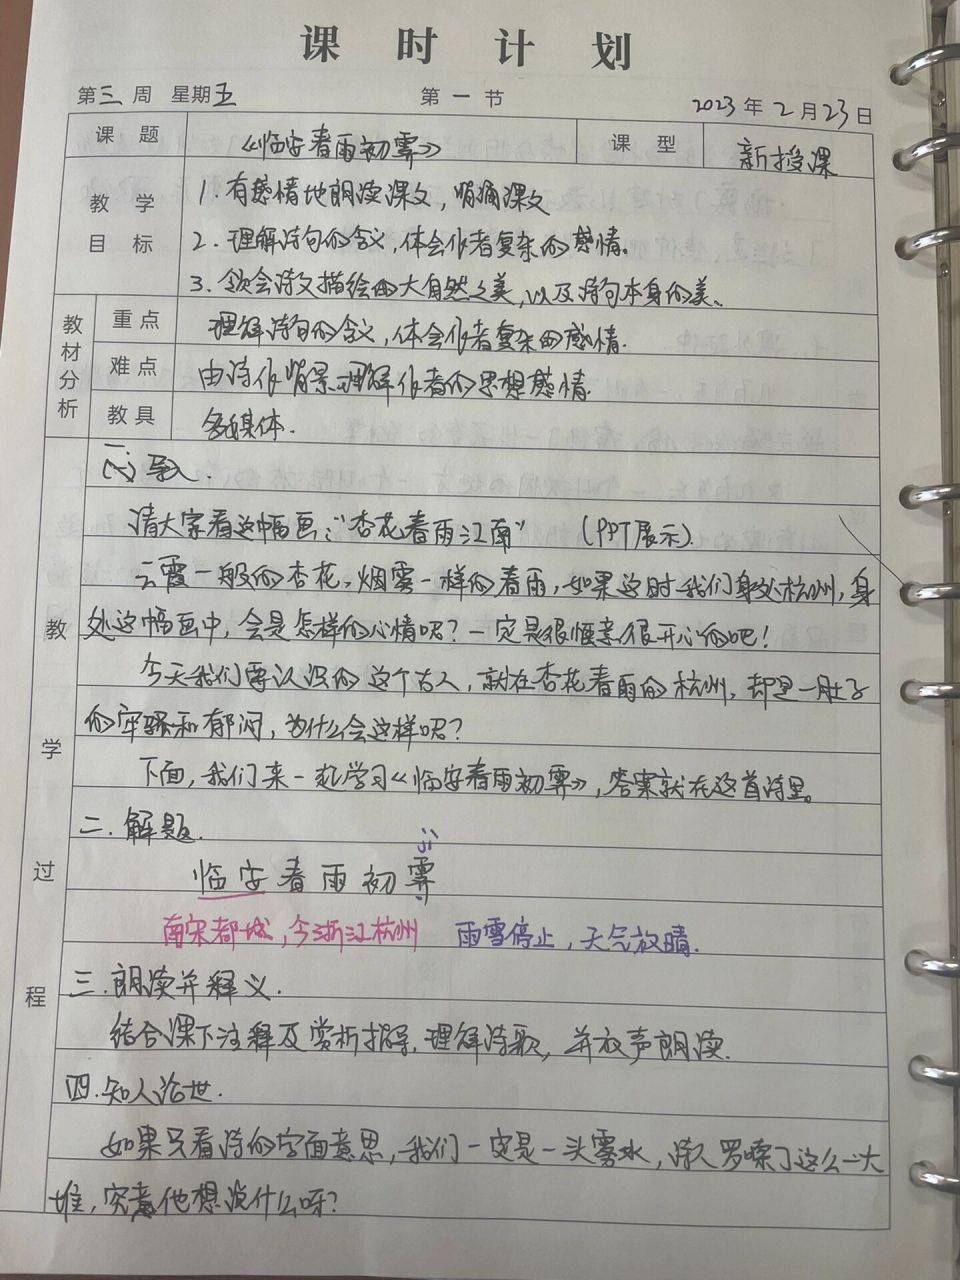 课时计划
第三周 星期五 第一节 2023年2月23日
课题 《临安春雨初霁》 课型 新授课
教学目标
1. 有感情地朗读课文，背诵课文
2. 理解诗句的含义，体会作者复杂的感情。
3. 领会诗文描绘的大自然之美，以及诗句本身的美。
教材分析
重点 理解诗句的含义，体会作者复杂的感情.
难点 由诗作背景理解作者的思想感情
教具 多媒体.
教学过程
一、导入.
请大家看这幅画："杏花春雨江南" (PPT展示)
云霞一般的杏花、烟雾一样的春雨，如果这时我们身处杭州，身
处这幅画中，会是怎样的心情呢？一定是很惬意很开心的吧！
今天我们要认识的这个古人，就在杏花春雨的杭州，却是一肚子
的牢骚和郁闷，为什么会这样呢？
下面，我们来一起学习《临安春雨初霁》，答案就在这首诗里。
二. 解题.
jì
临安春雨初霁
南宋都城，今浙江杭州 雨雪停止，天气放晴.
三. 朗读并释义.
结合课下注释及赏析指导，理解诗歌，并放声朗读.
四. 知人论世.
如果只看诗的字面意思，我们一定是一头雾水，诗人罗嗦了这么一大
堆，究竟他想说什么呀？